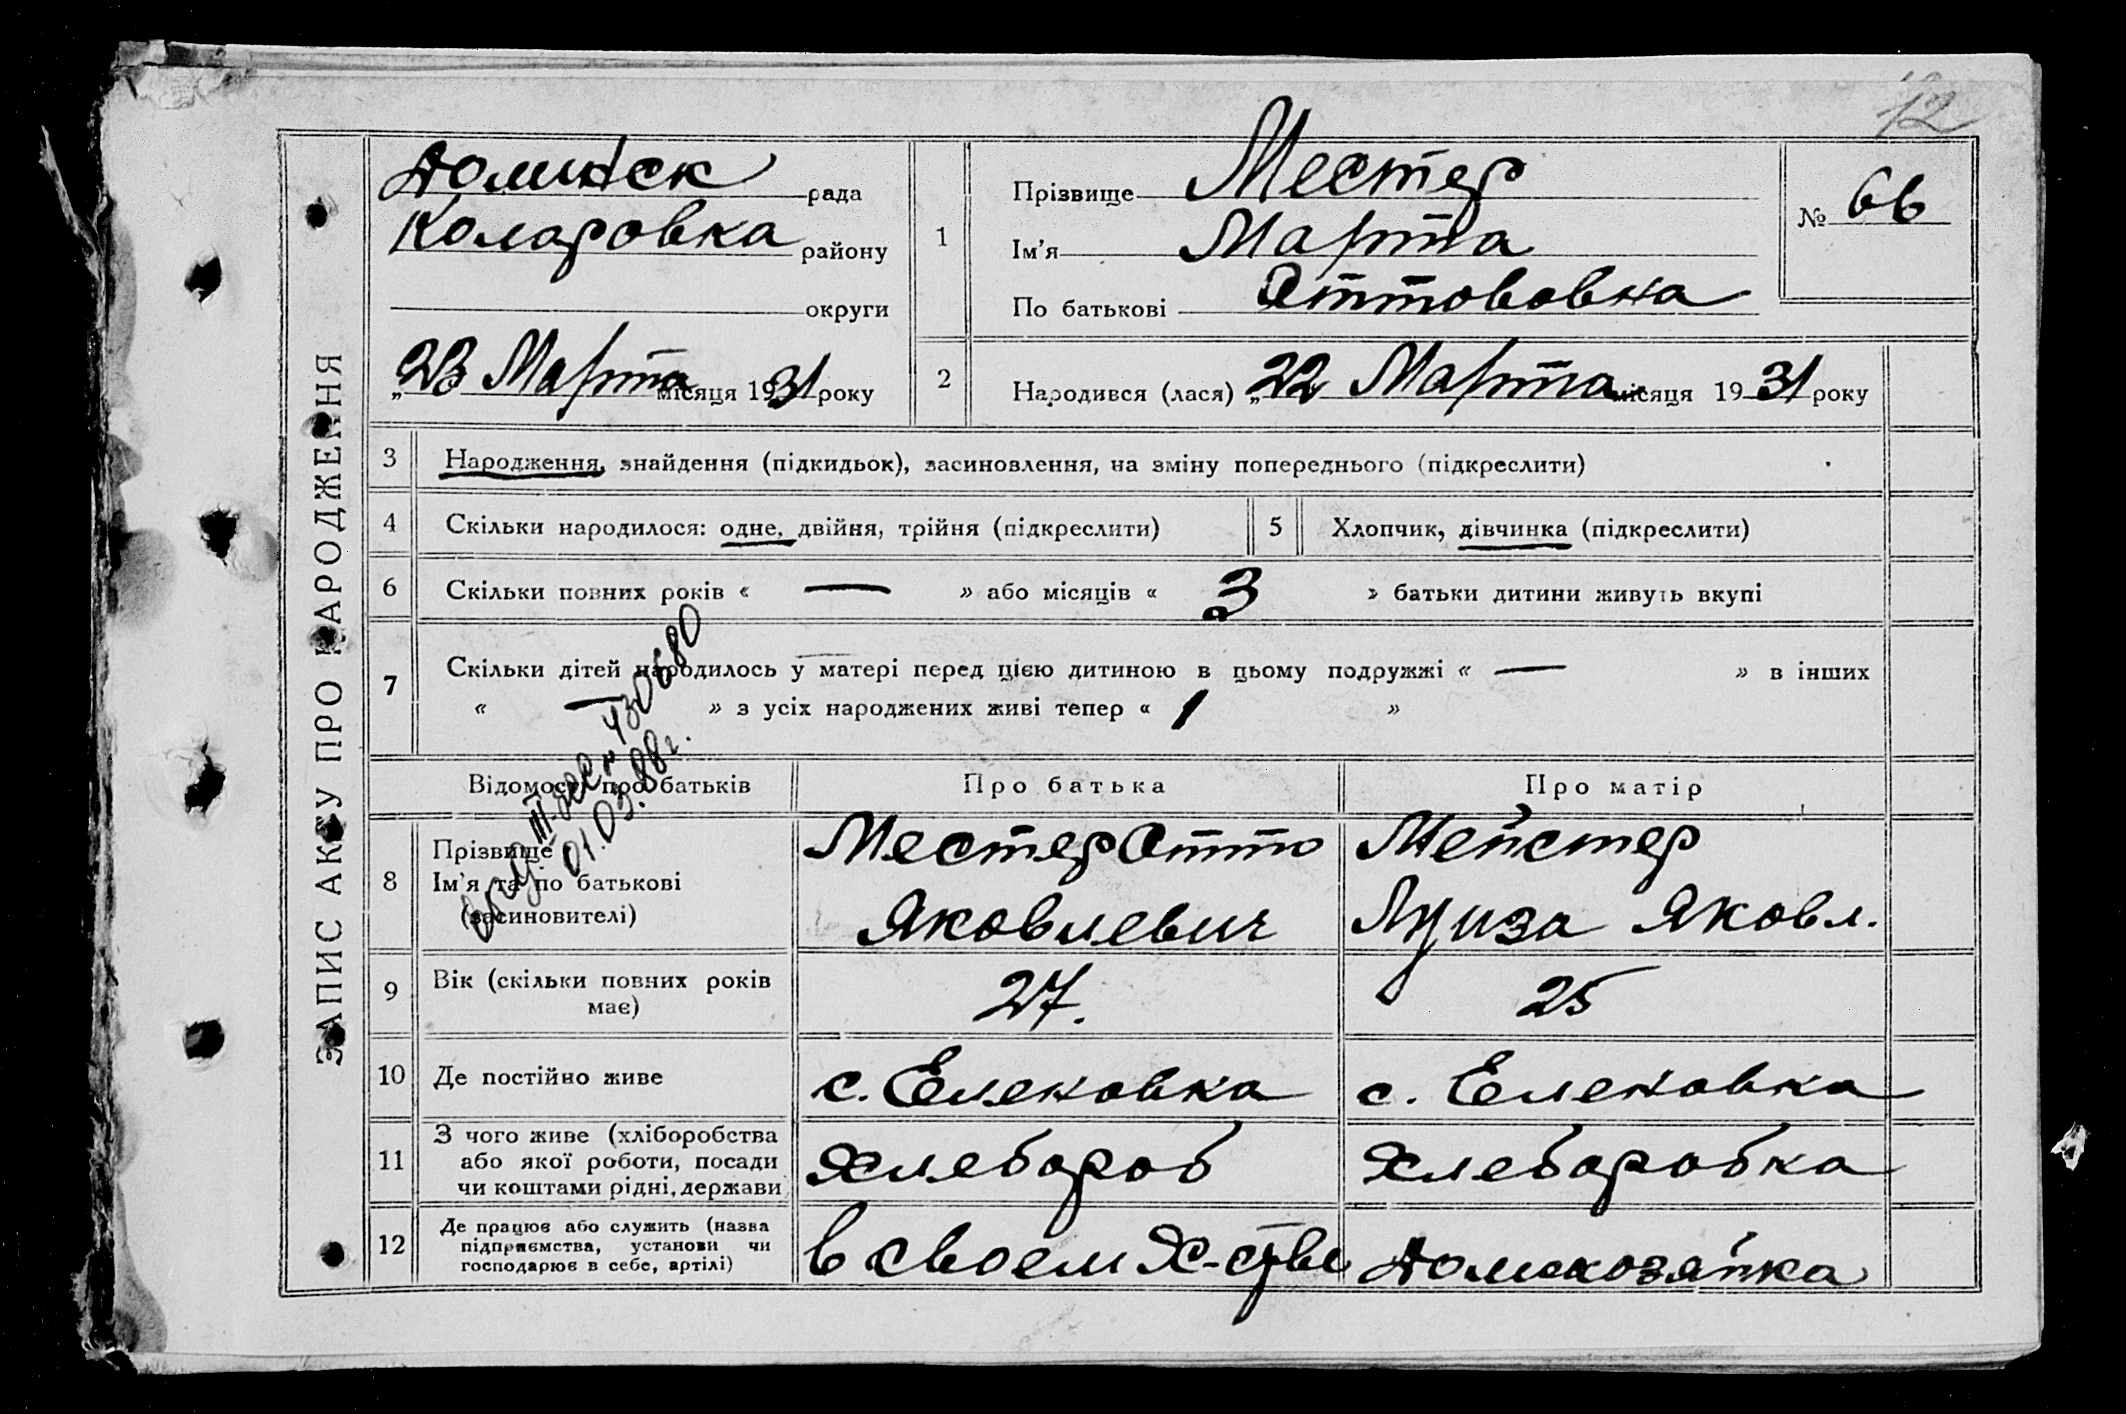 12
ЗАПИС АКТУ ПРО НАРОДЖЕННЯ
Долинск рада
Коларовка району
округи
„23 Марта місяця 1931 року
1
Прізвище Местер
Ім'я Марта
По батькові Оттововна
№ 66
2
Народився (лася) „22 Марта місяця 1931 року
3 Народження, знайдення (підкидьок), засиновлення, на зміну попереднього (підкреслити)
4 Скільки народилося: одне, двійня, трійня (підкреслити) 5 Хлопчик, дівчинка (підкреслити)
6 Скільки повних років « — » або місяців « 3 » батьки дитини живуть вкупі
7 Скільки дітей народилось у матері перед цією дитиною в цьому подружжі « — » в інших
« — » з усіх народжених живі тепер « 1 »
430680
01.03.88г.
Відомості про батьків Про батька Про матір
8 Прізвище
Ім'я та по батькові
(засиновителі)
Местер Отто
Яковлевич
Мейстер
Луиза Яковл.
9 Вік (скільки повних років
має)
27.
25
10 Де постійно живе с. Еленовка с. Еленовка
11 З чого живе (хліборобства
або якої роботи, посади
чи коштами рідні, держави
Хлебороб
Хлеборобка
12 Де працює або служить (назва
підприємства, установи чи
господарює в себе, артілі)
в своем Х-стве
Домохозяйка